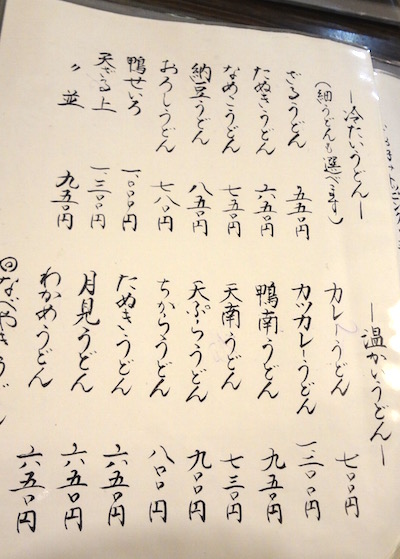 ―冷たいうどん―
(細うどんも選べます)
ざるうどん 五五〇円
たぬきうどん 六五〇円
なめこうどん 七五〇円
納豆うどん 八五〇円
おろしうどん 七八〇円
鴨せいろ 一、〇〇〇円
天ざる上 一、三〇〇円
〃 並 九五〇円
―温かいうどん―
カレーうどん 七〇〇円
カツカレーうどん 一、三〇〇円
鴨南うどん 九五〇円
天南うどん 七三〇円
天ぷらうどん 九〇〇円
ちからうどん 八〇〇円
たぬきうどん 六五〇円
月見うどん 六五〇円
わかめうどん 六五〇円
なべやきうどん